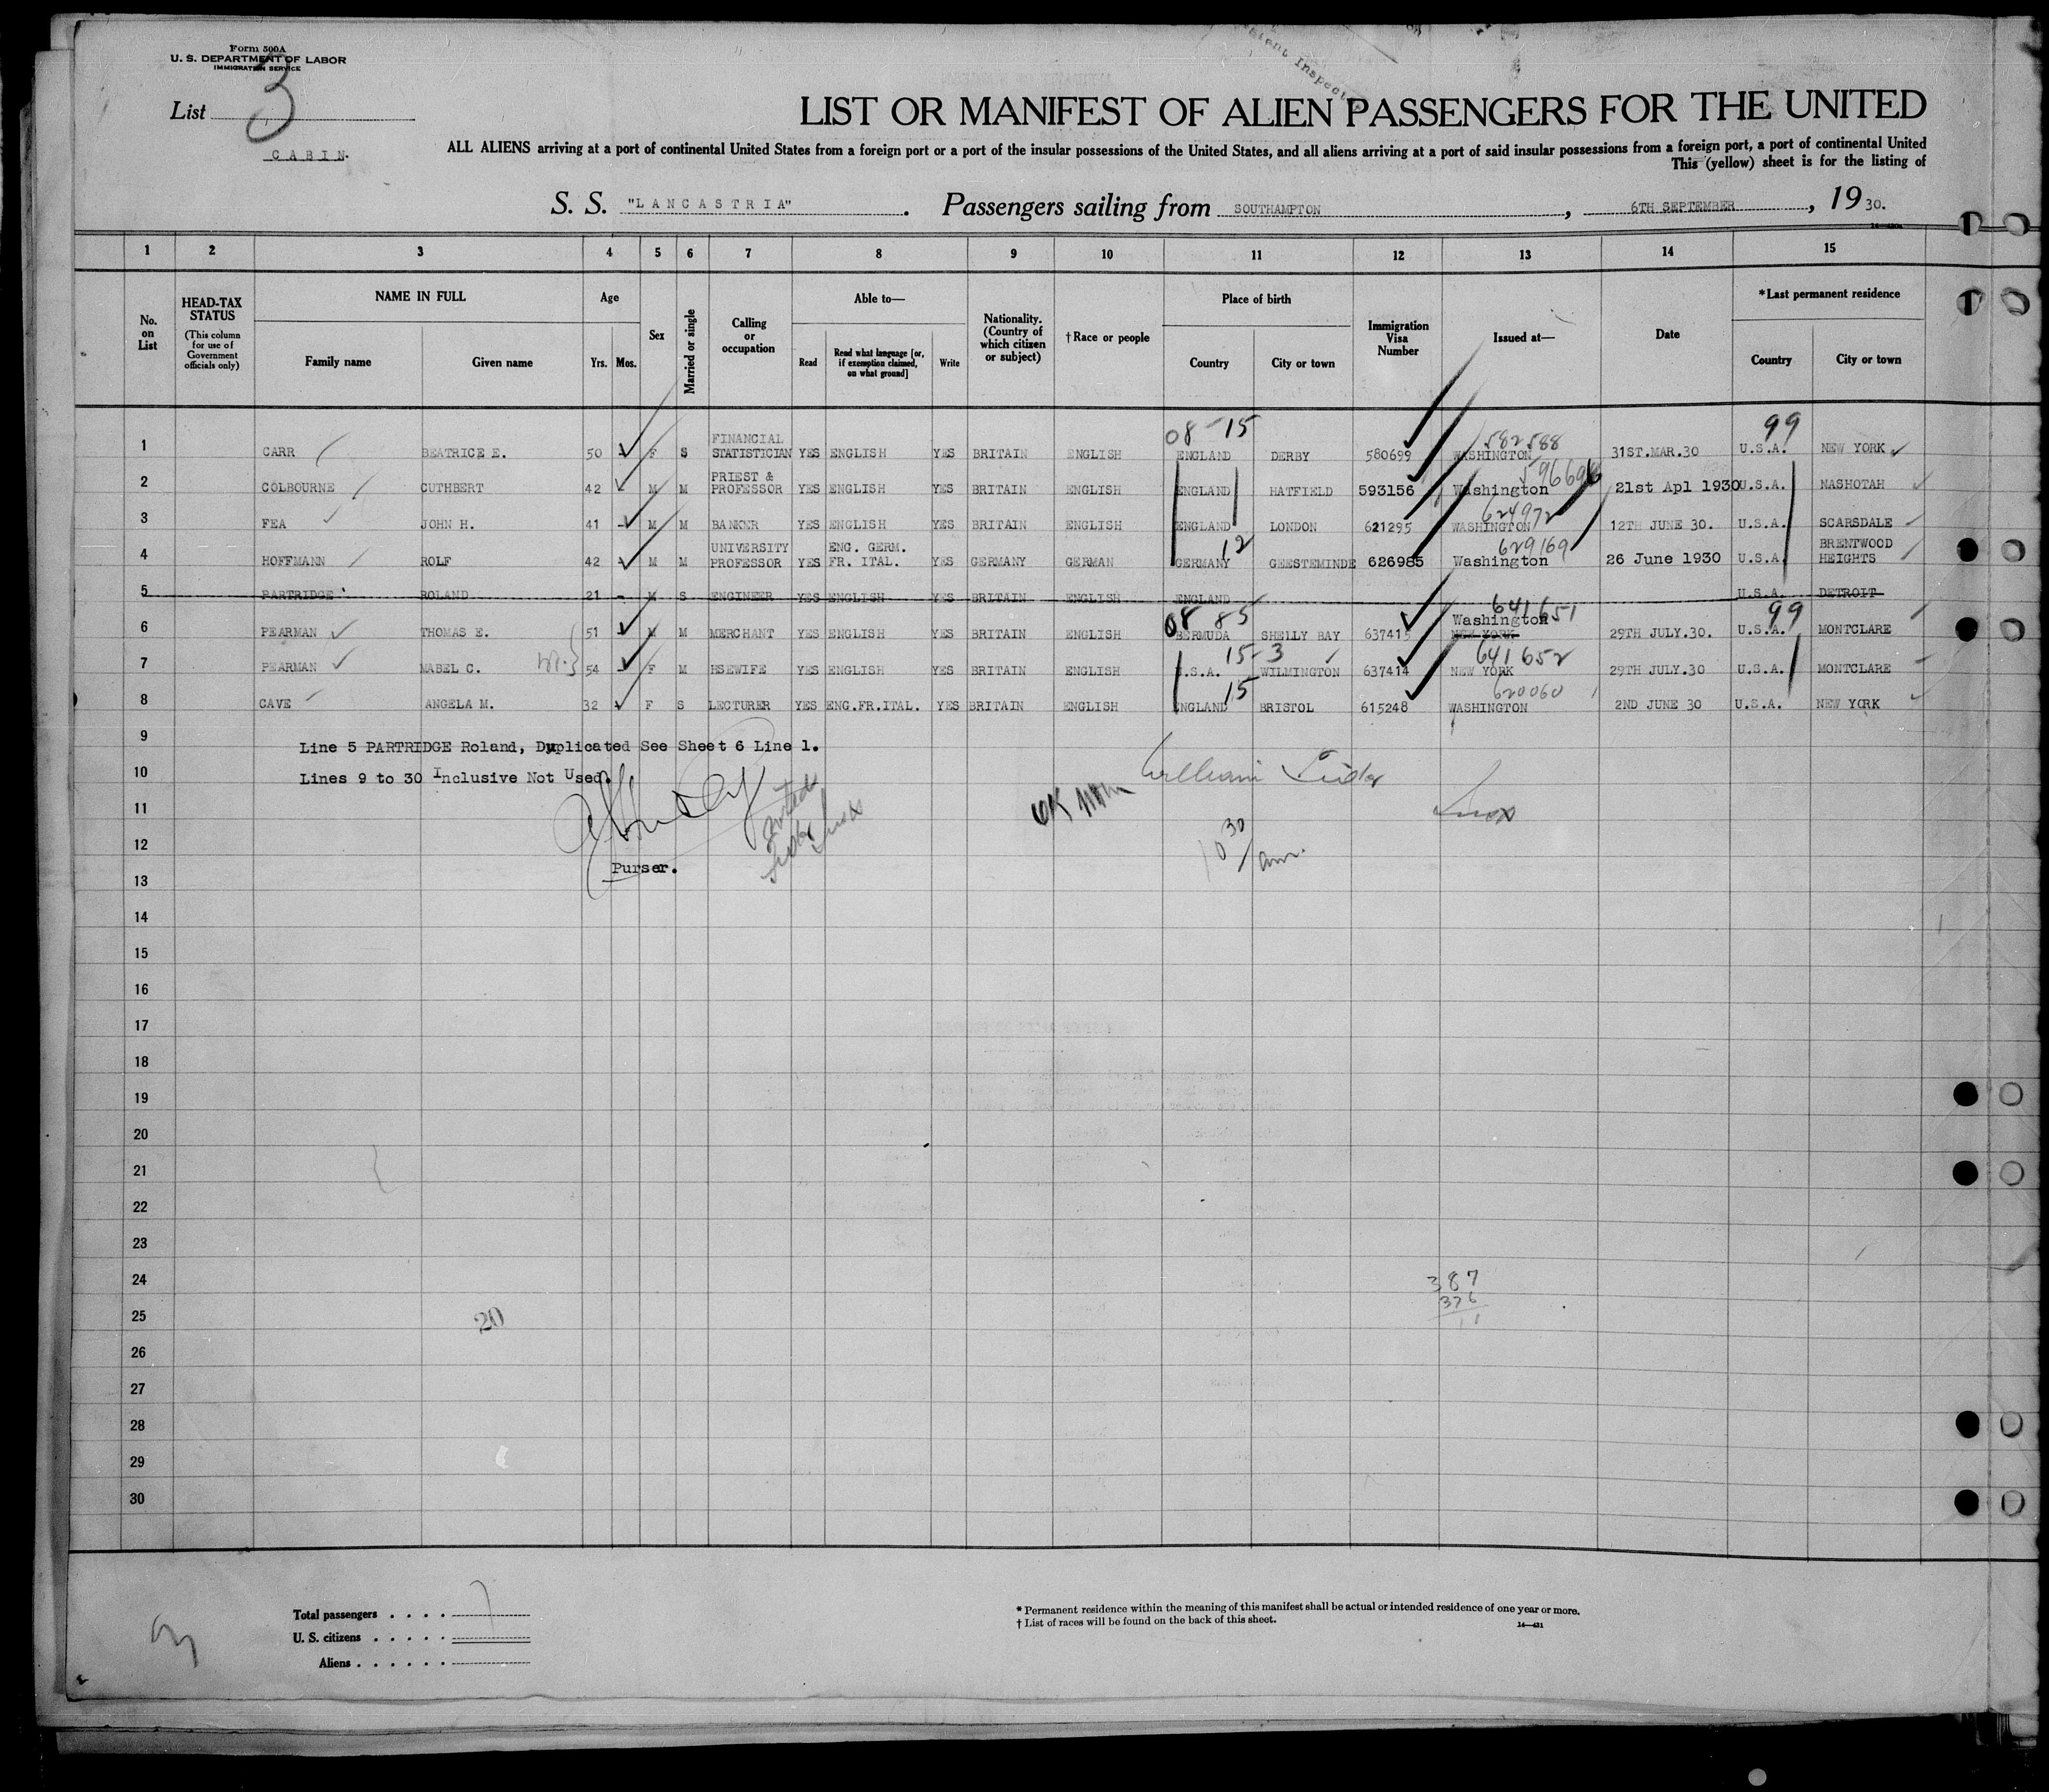 Form 500A
U. S. DEPARTMENT OF LABOR
IMMIGRATION SERVICE
List 3
CABIN.
LIST OR MANIFEST OF ALIEN PASSENGERS FOR THE UNITED
ALL ALIENS arriving at a port of continental United States from a foreign port or a port of the insular possessions of the United States, and all aliens arriving at a port of said insular possessions from a foreign port, a port of continental United
This (yellow) sheet is for the listing of
S. S. "LANCASTRIA". Passengers sailing from SOUTHAMPTON, 6TH SEPTEMBER, 1930.
1 2 3 4 5 6 7 8 9 10 11 12 13 14 15
No. on List
HEAD-TAX STATUS
(This column for use of Government officials only)
NAME IN FULL
Family name Given name
Age
Yrs. Mos.
Sex
Married or single
Calling or occupation
Able to—
Read Read what language [or, if exemption claimed, on what ground] Write
Nationality. (Country of which citizen or subject)
†Race or people
Place of birth
Country City or town
Immigration Visa Number
Issued at—
Date
*Last permanent residence
Country City or town
08-15 582588 99
1 CARR BEATRICE E. 50 - F S FINANCIAL STATISTICIAN YES ENGLISH YES BRITAIN ENGLISH ENGLAND DERBY 580699 WASHINGTON 31ST.MAR.30 U.S.A. NEW YORK
2 COLBOURNE CUTHBERT 42 - M M PRIEST & PROFESSOR YES ENGLISH YES BRITAIN ENGLISH ENGLAND HATFIELD 593156 Washington 21st Apl 1930 U.S.A. NASHOTAH
624972
3 FEA JOHN H. 41 - M M BANKER YES ENGLISH YES BRITAIN ENGLISH ENGLAND LONDON 621295 WASHINGTON 12TH JUNE 30. U.S.A. SCARSDALE
12 629169
4 HOFFMANN ROLF 42 - M M UNIVERSITY PROFESSOR YES ENG. GERM. FR. ITAL. YES GERMANY GERMAN GERMANY GEESTEMINDE 626985 Washington 26 June 1930 U.S.A. BRENTWOOD HEIGHTS
5 PARTRIDGE ROLAND 21 - M S ENGINEER YES ENGLISH YES BRITAIN ENGLISH ENGLAND U.S.A. DETROIT
08 85 641651 99
6 PEARMAN THOMAS E. 51 - M M MERCHANT YES ENGLISH YES BRITAIN ENGLISH BERMUDA SHELLY BAY 637415 Washington NEW YORK 29TH JULY.30. U.S.A. MONTCLARE
15-3 641652
7 PEARMAN MABEL C. 54 - F M HSEWIFE YES ENGLISH YES BRITAIN ENGLISH U.S.A. WILMINGTON 637414 NEW YORK 29TH JULY.30 U.S.A. MONTCLARE
15 620060
8 CAVE ANGELA M. 32 - F S LECTURER YES ENG.FR.ITAL. YES BRITAIN ENGLISH ENGLAND BRISTOL 615248 WASHINGTON 2ND JUNE 30 U.S.A. NEW YORK
9 Line 5 PARTRIDGE Roland, Duplicated See Sheet 6 Line 1.
10 Lines 9 to 30 Inclusive Not Used.
William
OK
11
12
10 30 / am.
Purser.
13
14
15
16
17
18
19
20
21
22
23
24
387
376
11
25
20
26
27
28
29
30
Total passengers . . . . 7
U. S. citizens . . . . .
Aliens . . . . . .
* Permanent residence within the meaning of this manifest shall be actual or intended residence of one year or more.
† List of races will be found on the back of this sheet.
14—431